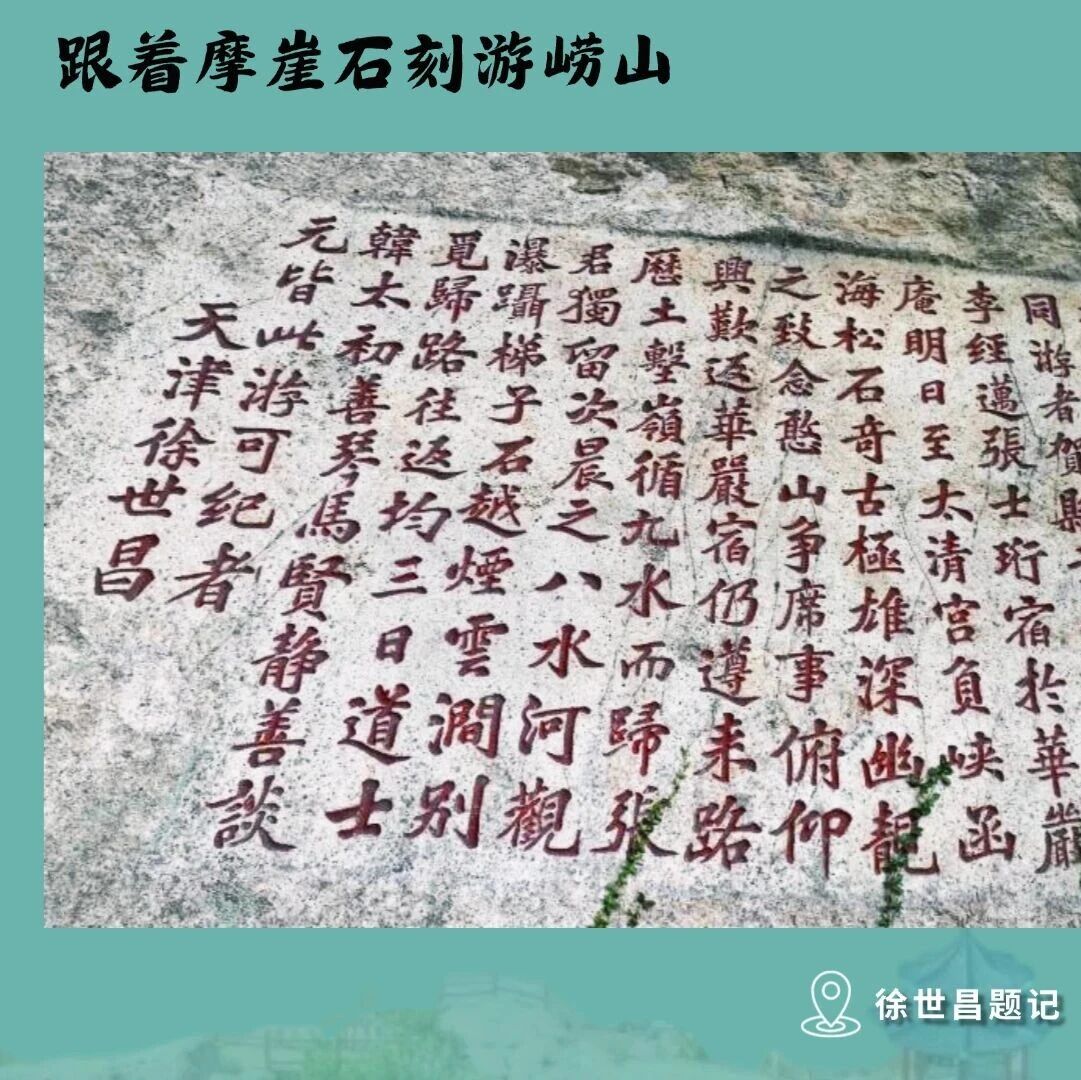 跟着摩崖石刻游崂山
同游者賀縣
李經邁張士珩宿於華嚴
庵明日至太清宮負峽函
海松石奇古極雄深幽靚
之致念憨山爭席事俯仰
興歎返華嚴宿仍遵来路
歷土墼嶺循九水而歸張
君獨留次晨之八水河觀
瀑躡梯子石越煙雲澗别
覓歸路往返均三日道士
韓太初善琴馬賢静善談
元皆此游可纪者
天津徐世昌
徐世昌题记